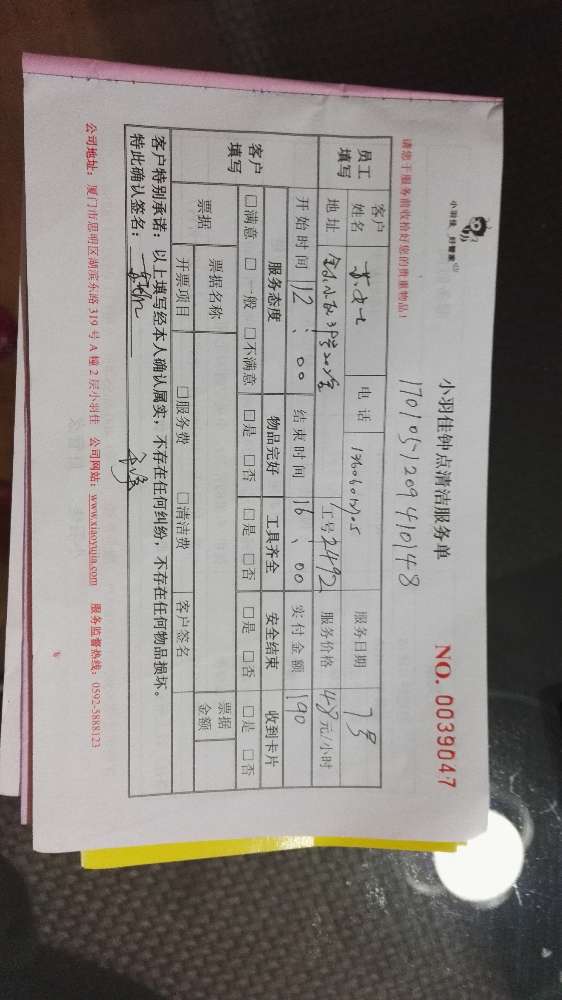 小羽佳 好管家
小羽佳钟点清洁服务单
NO. 0039047
请您于服务前收检好您的贵重物品！
1701051209410148
员工填写
客户姓名
电话
服务日期 7号
地址
工号 2492
服务价格 48元/小时
开始时间 12:00
结束时间 16:00
实付金额 190
客户填写
服务态度 物品完好 工具齐全 安全结束 收到卡片
□满意 □一般 □不满意 □是 □否 □是 □否 □是 □否 □是 □否
票据 票据名称 票据金额
开票项目 □服务费 □清洁费 客户签名
客户特别承诺：以上填写经本人确认属实，不存在任何纠纷，不存在任何物品损坏。
特此确认签名：
公司地址：厦门市思明区湖滨东路319号A幢2层小羽佳 公司网站：www.xiaoyujia.com 服务监督热线：0592-5888123